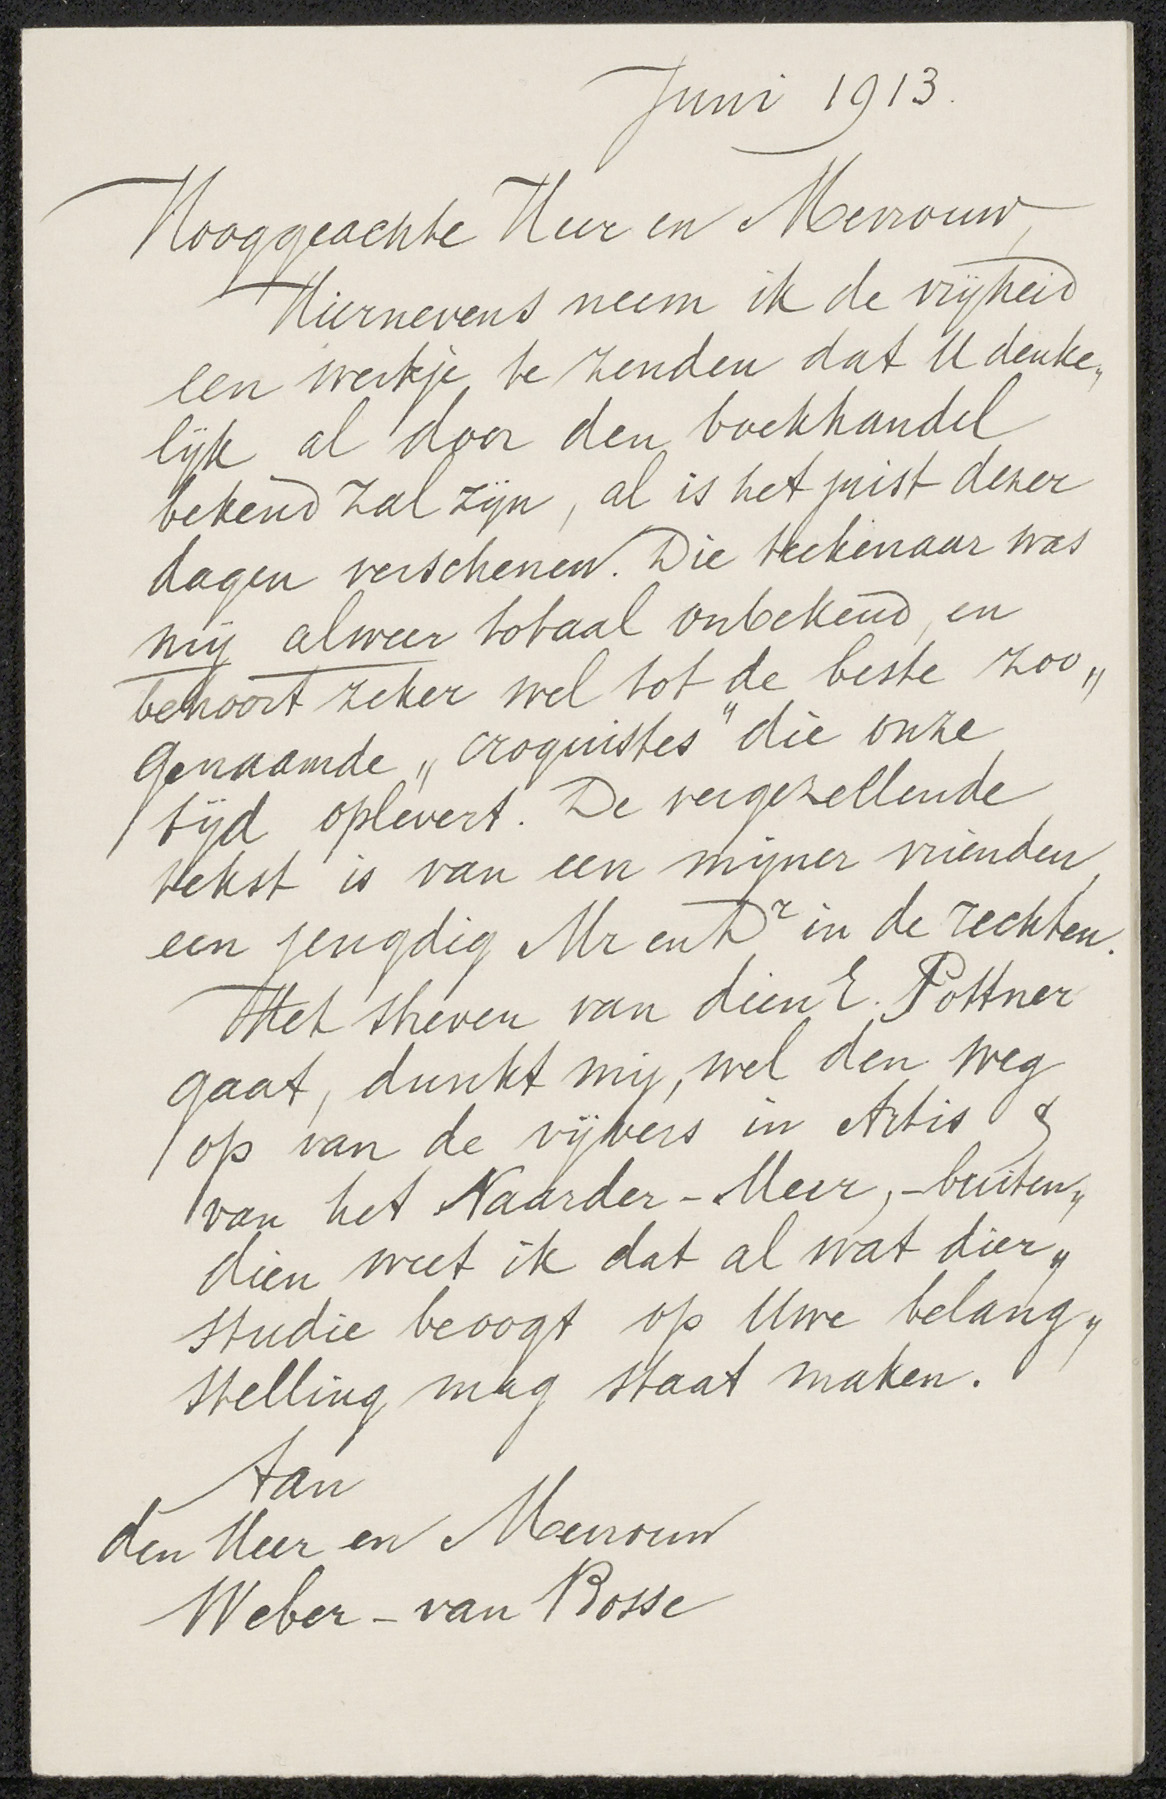 Juni 1913.
Hooggeachte Heer en Mevrouw,
Hiernevens neem ik de vrijheid
een werkje te zenden dat U denke„
lijk al door den boekhandel
bekend zal zijn, al is het juist dezer
dagen verschenen. Die teekenaar was
mij alweer totaal onbekend, en
behoort zeker wel tot de beste zoo„
genaamde „croquistes" die onze
tijd oplevert. De vergezellende
tekst is van een mijner vrienden,
een jeugdig Mr en Dr in de rechten.
Het streven van dien E. Pottner
gaat, dunkt mij, wel den weg
op van de vijvers in Artis &
van het Naarder-Meer, - buiten„
dien weet ik dat al wat dier„
studie beoogt op Uwe belang„
stelling mag staat maken.
Aan
den Heer en Mevrouw
Weber - van Bosse